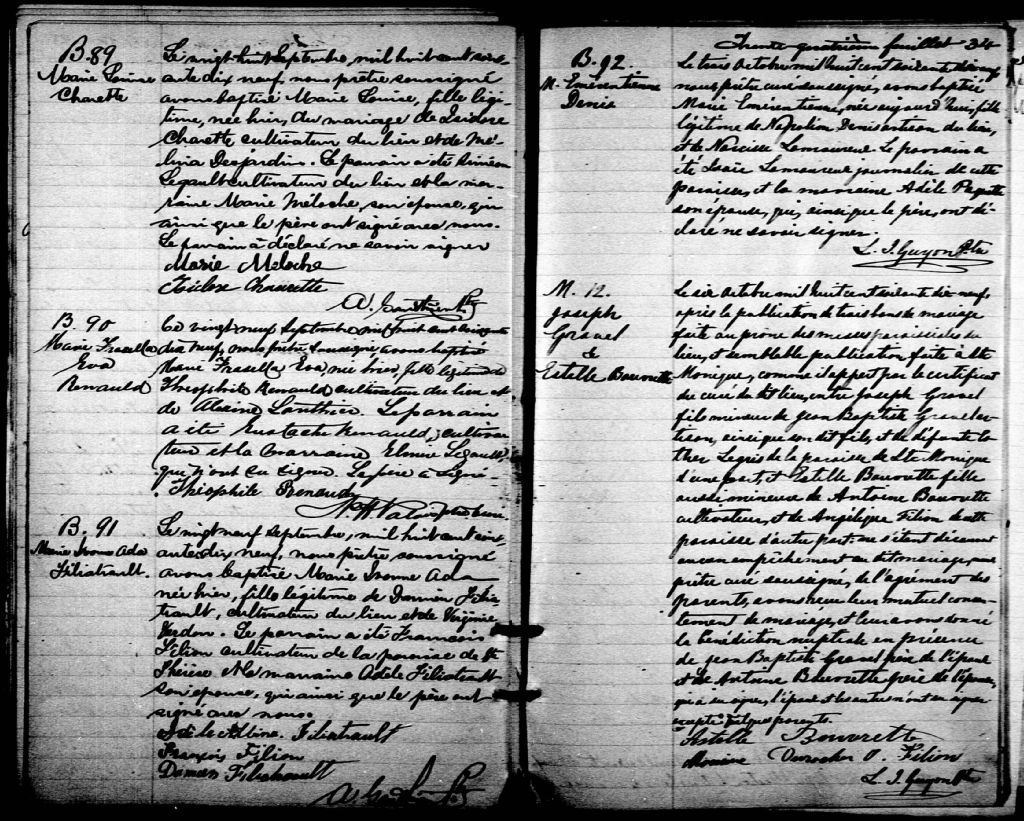 B. 89
Marie Louise
Charette
Le vingt huit Septembre, mil huit cent soix-
ante dix neuf, nous prêtre soussigné
avons baptisé Marie Louise, fille légi-
time, née hier, du mariage de Isidore
Charette cultivateur du lieu et de Mé-
lina Desjardins. Le parrain a été
Legault cultivateur du lieu et la mar-
raine Marie Méloche, son épouse, qui
ainsi que le père ont signé avec nous.
Le parrain a déclaré ne savoir signer
Marie Meloche
Isidore Charrette
A. Ptre
B. 90
Marie
Eva
Renauld
Ce vingt neuf Septembre mil huit cent soixante
dix neuf, nous prêtre soussigné avons baptisé
Marie Eva, née hier, fille légitime de
Théophile Renauld cultivateur du lieu et
de Lanthier. Le parrain
a été Eustache Renauld, cultiva-
teur et la marraine Legault,
qui n'ont su signer. Le père a signé.
Théophile Renaud
B. 91
Marie Ivonne Ada
Filiatrault.
Le vingt neuf Septembre, mil huit cent soix-
ante dix neuf, nous prêtre soussigné
avons baptisé Marie Ivonne Ada
née hier, fille légitime de Damien Filia-
trault, cultivateur du lieu et de Virginie
Verdon. Le parrain a été Francois
Filion cultivateur de la paroisse de Ste
Thérèse et la marraine Adèle Filiatrault
son épouse, qui ainsi que le père ont
signé avec nous.
Filiatrault
François Filion
Damien Filiatrault
A. Ptre
Trente quatrième feuillet 34
B. 92.
M. Emérentienne
Denis
Le trois Octobre mil huit cent soixante dix neuf
nous prêtre curé soussigné, avons baptisé
Marie Emérentienne, née aujourd'hui, fille
légitime de Napoléon Denis artisan du lieu,
et de Narcisse Lamoureux. Le parrain a
été Isaïe Lamoureux journalier de cette
paroisse, et la marraine Adèle
son épouse, qui, ainsi que le père, ont dé-
claré ne savoir signer.
L. J. Guyon Ptre
M. 12.
Joseph
Gravel
&
Estelle Bouvrette
Le six Octobre mil huit cent soixante dix neuf,
après la publication de trois bans de mariage
faite au prône des messes paroissiales du
lieu, et semblable publication faite à Ste
Monique, comme il appert par le certificat
du curé du dit lieu, entre Joseph Gravel
fils mineur de Jean Baptiste Gravel ar-
tisan, ainsi que son dit fils, et de défunte Es-
ther Legris de la paroisse de Ste Monique
d'une part, et Estelle Bouvrette fille
aussi mineure de Antoine Bouvrette
cultivateur, et de Angélique Filion de cette
paroisse d'autre part, ne s'étant découvert
aucun empêchement au dit mariage, nous
prêtre curé soussigné, de l'agrément des
parents, avons reçu leur mutuel consen-
tement de mariage, et leur avons donné
la bénédiction nuptiale en présence
de Jean Baptiste Gravel père de l'époux
et de Antoine Bouvrette père de l'épouse,
qui a su signer, l'époux et les autres n'ont su signer
excepté quelques parents.
Estelle Bouvrette
Filion
L. J. Guyon Ptre